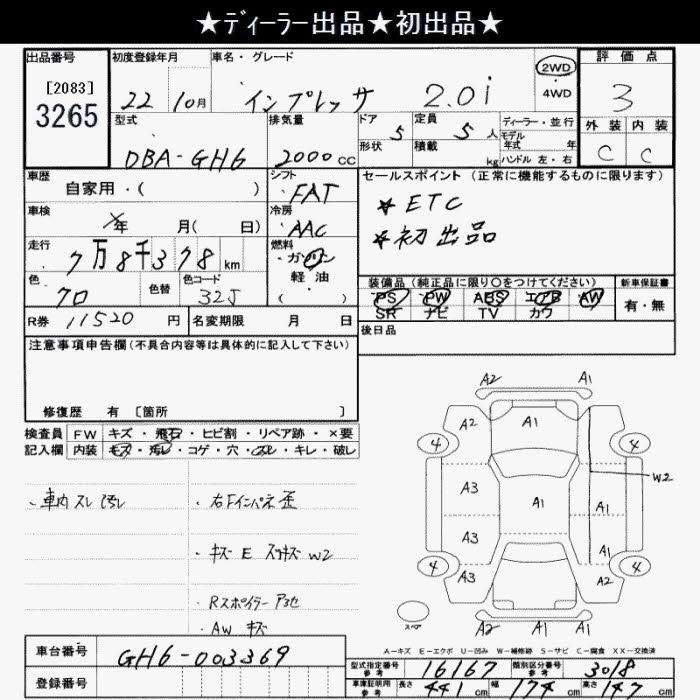 ★ディーラー出品★初出品★
出品番号
[2083]
3265
初度登録年月
22 10月
車名・グレード
インプレッサ 2.0i
2WD
・
4WD
評価点
3
外装 内装
C C
型式
DBA-GH6
排気量
2000cc
ドア 5
形状
定員 5 人
積載 kg
ディーラー・並行
モデル
年式 年
ハンドル 左・右
車歴
自家用・( )
シフト
FAT
セールスポイント(正常に機能するものに限ります)
＊ETC
＊初出品
車検
年 月( 日)
冷房
AAC
走行
7万8千378km
燃料
・ガソリン
軽油
・( )
色
クロ
色替
色コード
32J
装備品(純正品に限り〇をつけてください)
PS PW ABS エアB AW
SR ナビ TV カワ
新車保証書
有・無
R券 11520 円
名変期限 月 日
後日品
注意事項申告欄(不具合内容等は具体的に記入して下さい)
修復歴 有 [箇所 ]
検査員
記入欄
FW キズ・飛石・ヒビ割・リペア跡・×要
内装 キズ・汚レ・コゲ・穴・スレ・キレ・破レ
・車内スレ汚レ
・右Fインパネ歪
・キズ E スリキズ W2
・Rスポイラー
・AW キズ
A2 A1
A2 A1
4 4
A3 A1 W2
A3 A1 A1
4 4
A3 A2
スペア
A2 A1 A1
A-キズ E-エクボ U-凹み W-補修跡 S-サビ C-腐食 XX-交換済
車台番号
GH6-003369
登録番号
型式指定番号
参考
16167
類別区分番号
参考
3018
車庫証明用
参考
長さ 441 cm 幅 174 cm 高さ 147 cm